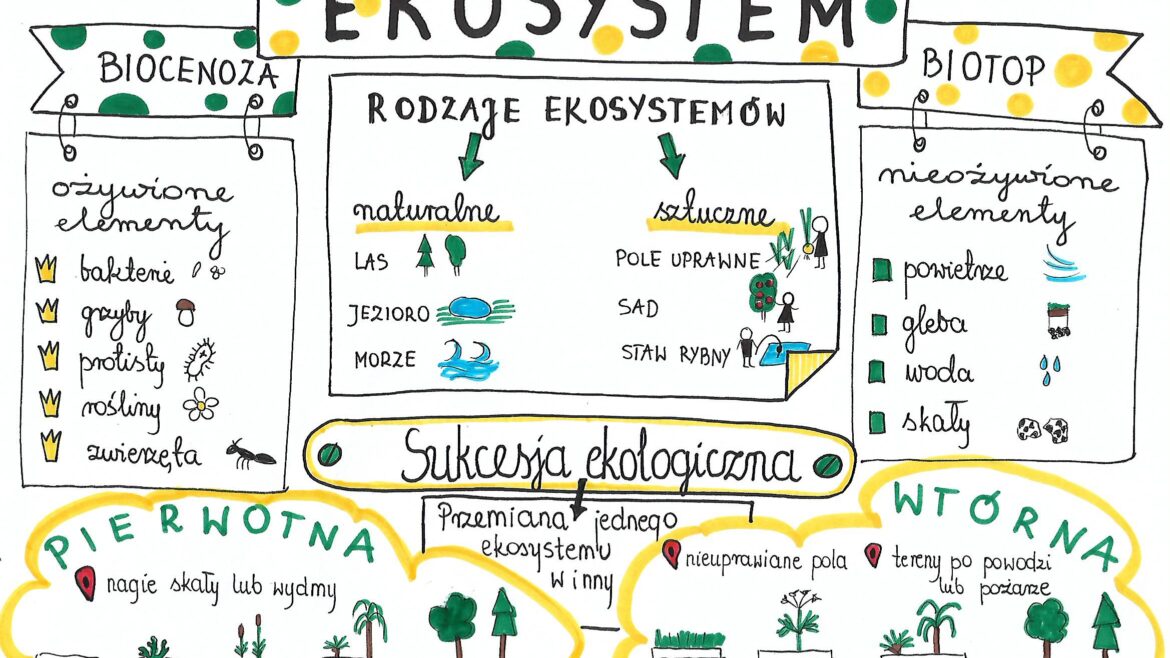 EKOSYSTEM
BIOCENOZA
ożywione
elementy
bakterie
grzyby
protisty
rośliny
zwierzęta
RODZAJE EKOSYSTEMÓW
naturalne
LAS
JEZIORO
MORZE
sztuczne
POLE UPRAWNE
SAD
STAW RYBNY
BIOTOP
nieożywione
elementy
powietrze
gleba
woda
skały
Sukcesja ekologiczna
Przemiana jednego
ekosystemu
w inny
PIERWOTNA
nagie skały lub wydmy
WTÓRNA
nieuprawiane pola
tereny po powodzi
lub pożarze